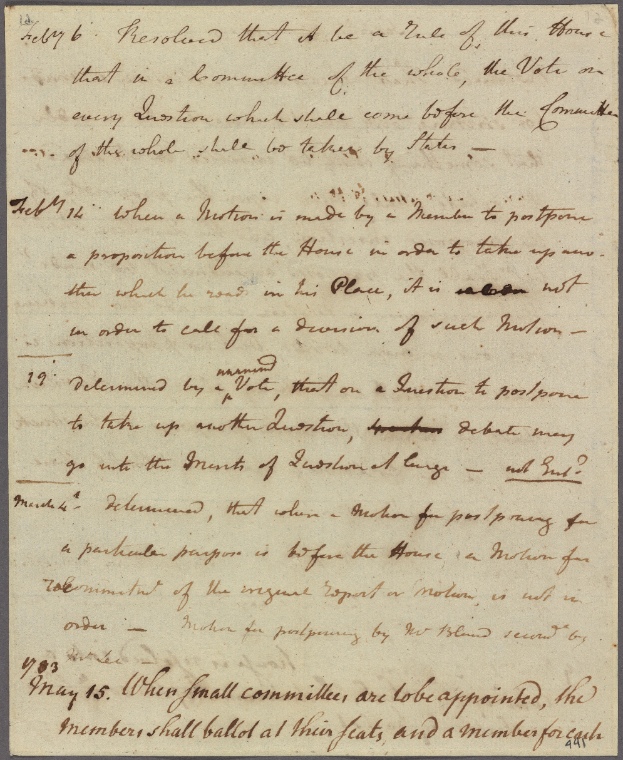 Feby 6 Resolved that it be a Rule of this House
that in a Committee of the whole, the Vote on
every Question which shall come before the Committee
of the whole shall be taken by States —
Feby 14 when a Motion is made by a Member to postpone
a proposition before the House in order to take up ano-
ther which he reads in his Place, it is not
in order to call for a division of such Motion —
19 determined by a unanimd Vote, that on a Question to postpone
to take up another Question, debate may
go into the Merits of Question at large — not Entd
March 4th determined, that when a Motion for postponing for
a particular purpose is before the House a Motion for
recommitmt of the original Report or Motion, is not in
order — Motion for postponing by Mr Bland second by
1783
May 15. When small committees are to be appointed, the
members shall ballot at their seats, and a member for each
441